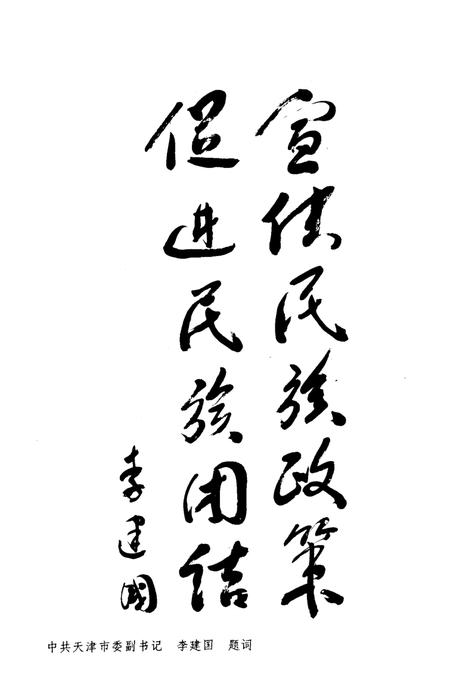 宣传民族政策
促进民族团结
李建国
中共天津市委副书记 李建国 题词